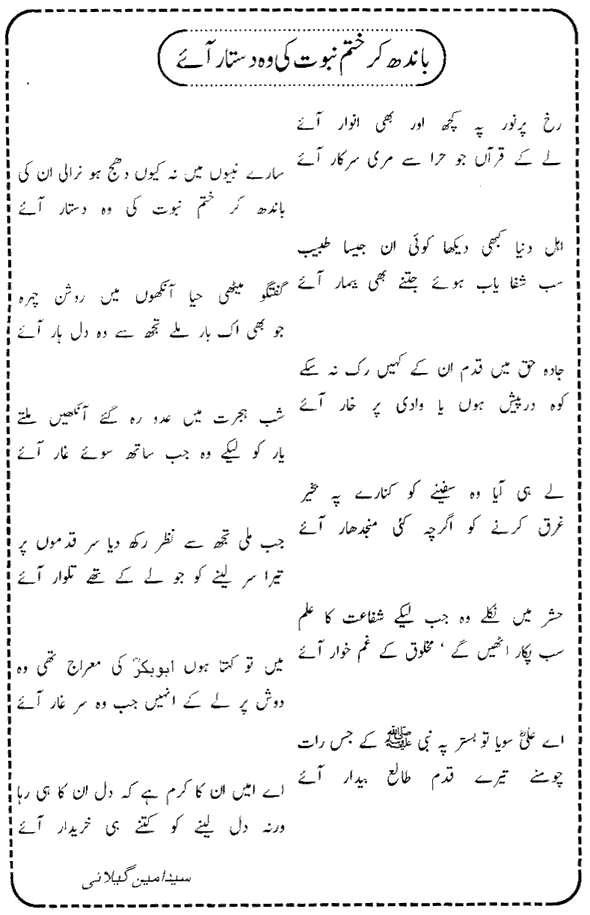 باندھ کر ختم نبوت کی وہ دستار آئے
رخ پرنور پہ کچھ اور بھی انوار آئے
لے کے قرآں جو حرا سے مری سرکار آئے
سارے نبیوں میں نہ کیوں دھج ہو نرالی ان کی
باندھ کر ختم نبوت کی وہ دستار آئے
اہل دنیا کبھی دیکھا کوئی ان جیسا طبیب
سب شفا یاب ہوئے جتنے بھی بیمار آئے
گفتگو میٹھی حیا آنکھوں میں روشن چہرہ
جو بھی اک بار ملے تجھ سے وہ دل ہار آئے
جادہ حق میں قدم ان کے کہیں رک نہ سکے
کوہ درپیش ہوں یا وادی پر خار آئے
شب ہجرت میں عدو رہ گئے آنکھیں ملتے
یار کو لیکے وہ جب ساتھ سوئے غار آئے
لے ہی آیا وہ سفینے کو کنارے پہ بخیر
غرق کرنے کو اگرچہ کئی منجدھار آئے
جب ملی تجھ سے نظر رکھ دیا سر قدموں پر
تیرا سر لینے کو جو لے کے تھے تلوار آئے
حشر میں نکلے وہ جب لیکے شفاعت کا علم
سب پکار اٹھیں گے ‘ مخلوق کے غم خوار آئے
میں تو کہتا ہوں ابوبکرؓ کی معراج تھی وہ
دوش پر لے کے انہیں جب وہ سر غار آئے
اے علیؓ سویا تو بستر پہ نبی ﷺ کے جس رات
چومنے تیرے قدم طالع بیدار آئے
اے امیں ان کا کرم ہے کہ دل ان کا ہی رہا
ورنہ دل لینے کو کتنے ہی خریدار آئے
سید امین گیلانی